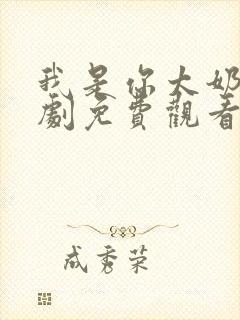 我是你大奶
劇免費觀看
成秀荣